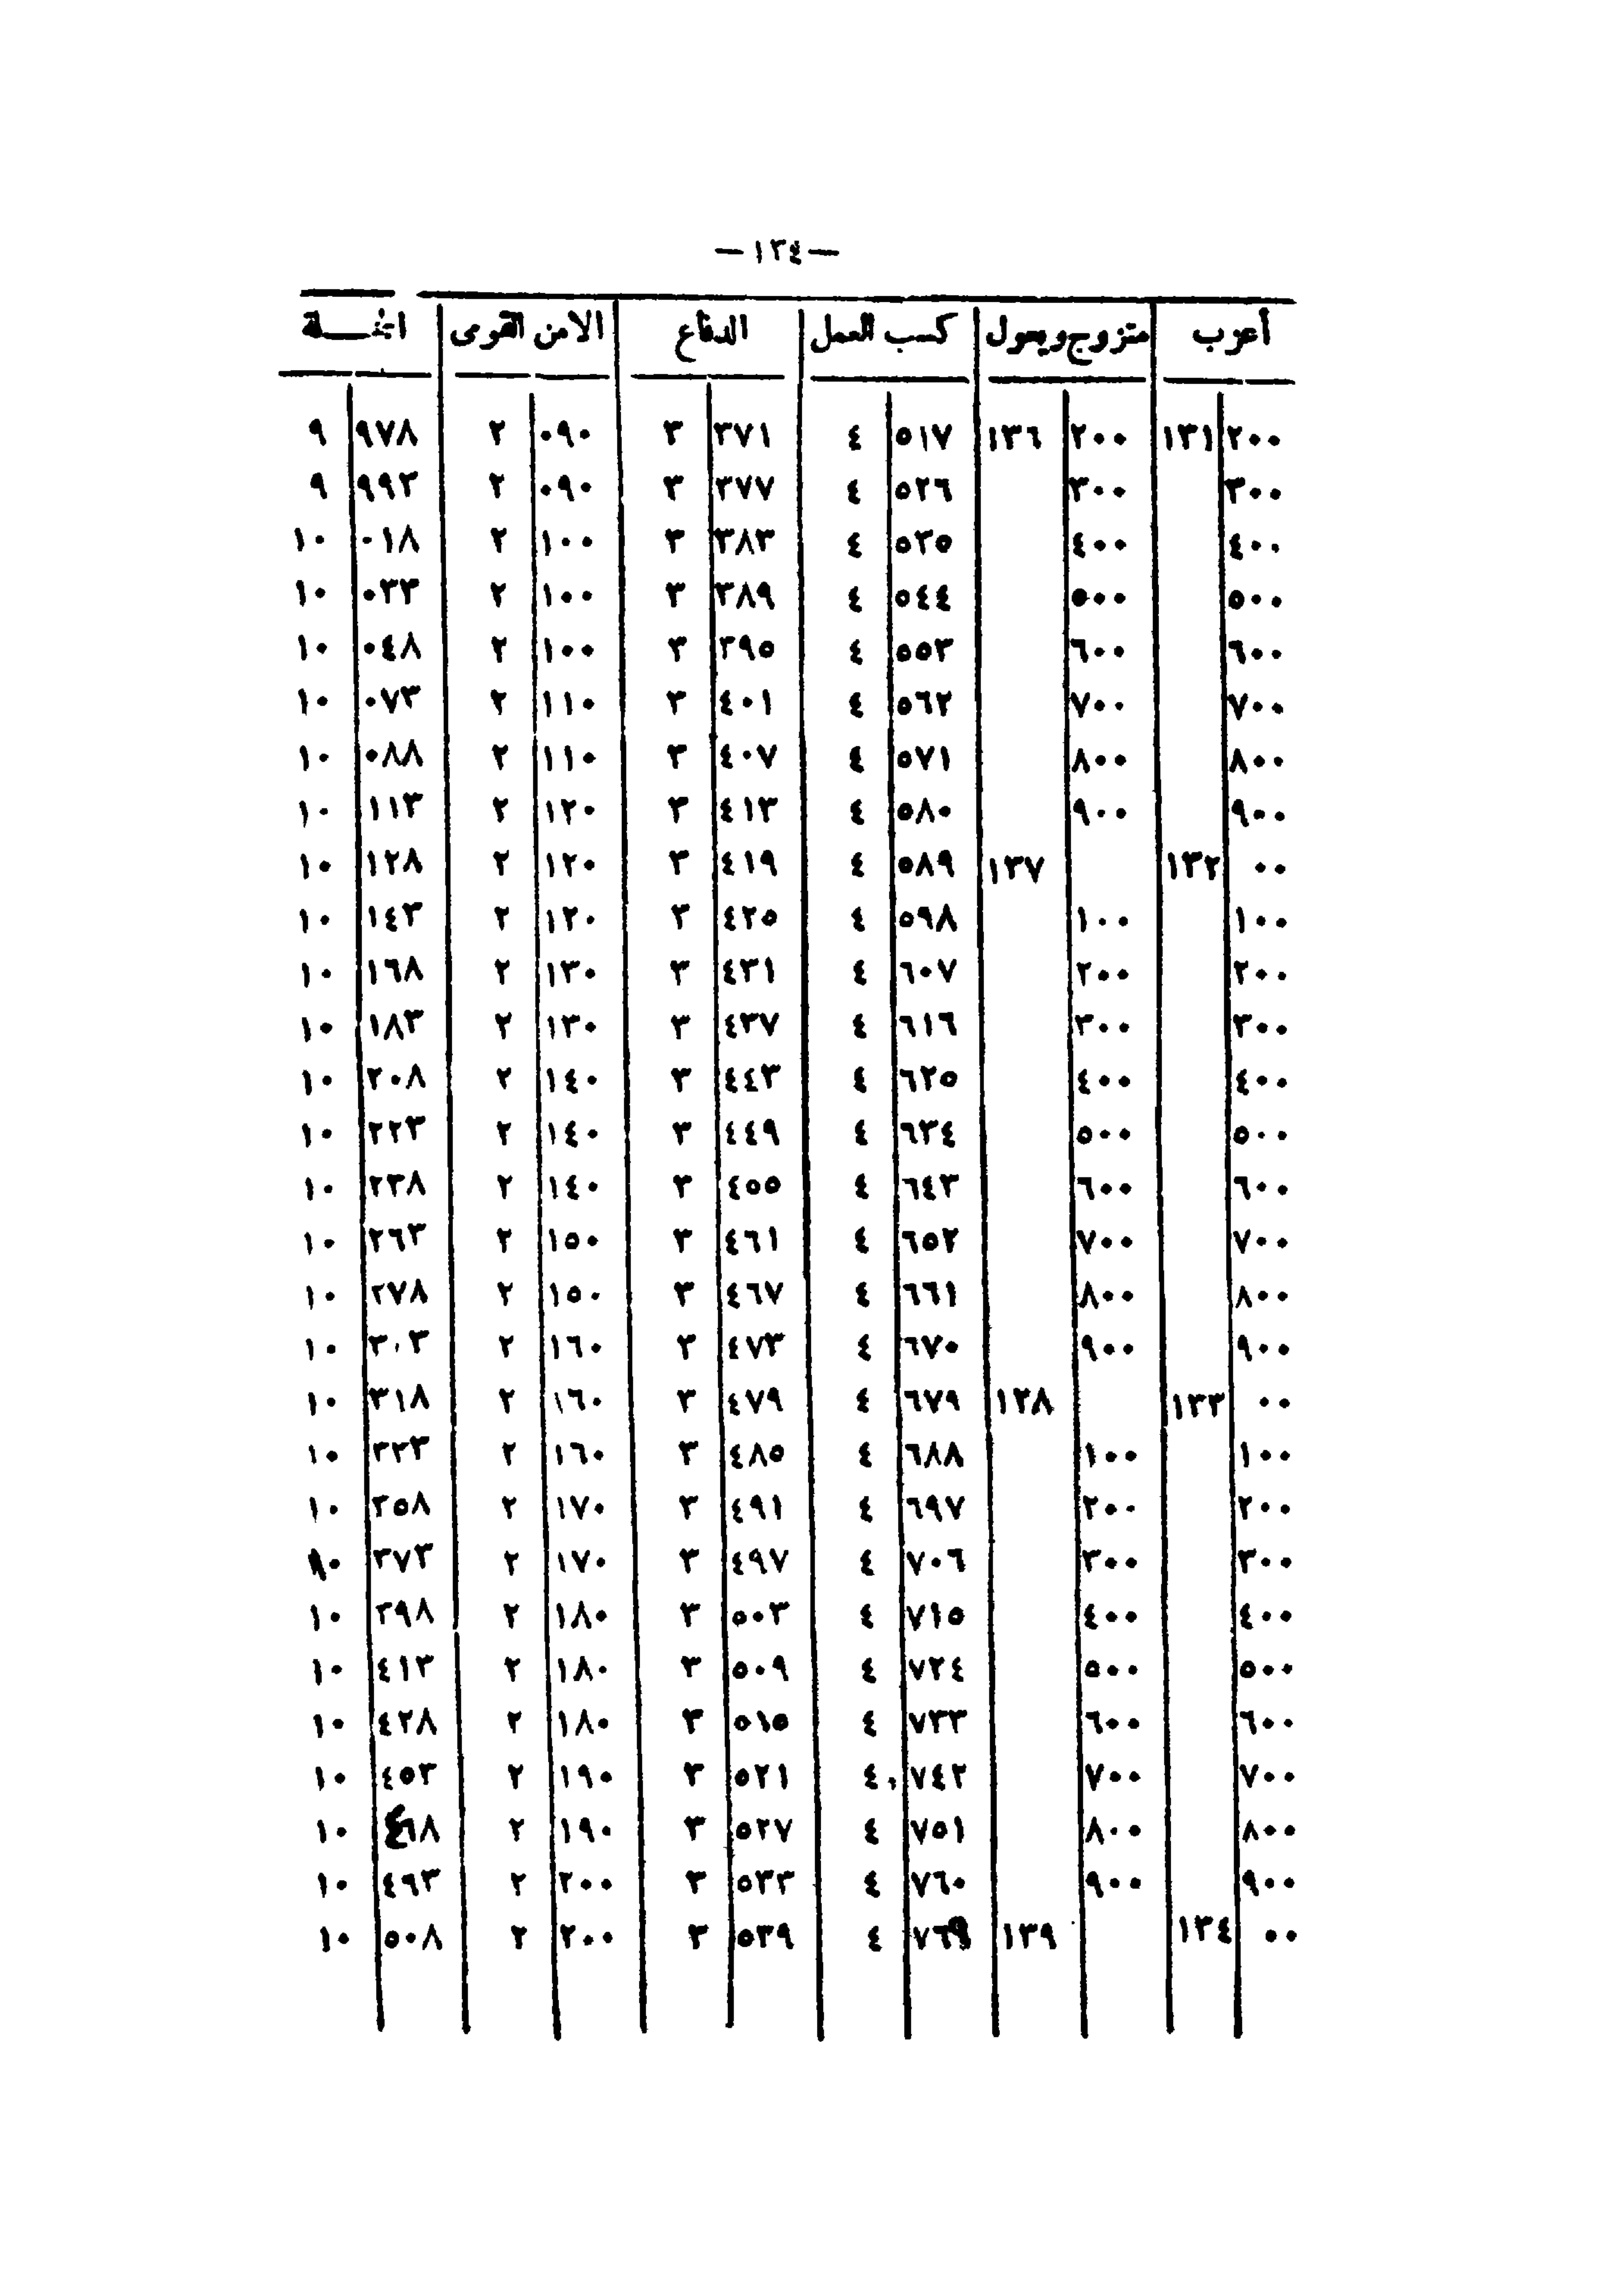 —١٣٤—
أعزب متزوج ويعول كسب العمل الدفاع الامن القومى الجملة
٢٠٠ ١٣١ ٢٠٠ ١٣٦ ٥١٧ ٤ ٣٧١ ٣ ٠٩٠ ٢ ٩٧٨ ٩
٣٠٠ ٣٠٠ ٥٢٦ ٤ ٣٧٧ ٣ ٠٩٠ ٢ ٩٩٣ ٩
٤٠٠ ٤٠٠ ٥٣٥ ٤ ٣٨٣ ٣ ١٠٠ ٢ ٠١٨ ١٠
٥٠٠ ٥٠٠ ٥٤٤ ٤ ٣٨٩ ٣ ١٠٠ ٢ ٠٣٣ ١٠
٦٠٠ ٦٠٠ ٥٥٣ ٤ ٣٩٥ ٣ ١٠٠ ٢ ٠٤٨ ١٠
٧٠٠ ٧٠٠ ٥٦٢ ٤ ٤٠١ ٣ ١١٠ ٢ ٠٧٣ ١٠
٨٠٠ ٨٠٠ ٥٧١ ٤ ٤٠٧ ٣ ١١٠ ٢ ٠٨٨ ١٠
٩٠٠ ٩٠٠ ٥٨٠ ٤ ٤١٣ ٣ ١٢٠ ٢ ١١٣ ١٠
٠٠ ١٣٢ ١٣٧ ٥٨٩ ٤ ٤١٩ ٣ ١٢٠ ٢ ١٢٨ ١٠
١٠٠ ١٠٠ ٥٩٨ ٤ ٤٢٥ ٣ ١٢٠ ٢ ١٤٣ ١٠
٢٠٠ ٢٠٠ ٦٠٧ ٤ ٤٣١ ٣ ١٣٠ ٢ ١٦٨ ١٠
٣٠٠ ٣٠٠ ٦١٦ ٤ ٤٣٧ ٣ ١٣٠ ٢ ١٨٣ ١٠
٤٠٠ ٤٠٠ ٦٢٥ ٤ ٤٤٣ ٣ ١٤٠ ٢ ٢٠٨ ١٠
٥٠٠ ٥٠٠ ٦٣٤ ٤ ٤٤٩ ٣ ١٤٠ ٢ ٢٢٣ ١٠
٦٠٠ ٦٠٠ ٦٤٣ ٤ ٤٥٥ ٣ ١٤٠ ٢ ٢٣٨ ١٠
٧٠٠ ٧٠٠ ٦٥٢ ٤ ٤٦١ ٣ ١٥٠ ٢ ٢٦٣ ١٠
٨٠٠ ٨٠٠ ٦٦١ ٤ ٤٦٧ ٣ ١٥٠ ٢ ٢٧٨ ١٠
٩٠٠ ٩٠٠ ٦٧٠ ٤ ٤٧٣ ٣ ١٦٠ ٢ ٣٠٣ ١٠
٠٠ ١٣٣ ١٣٨ ٦٧٩ ٤ ٤٧٩ ٣ ١٦٠ ٢ ٣١٨ ١٠
١٠٠ ١٠٠ ٦٨٨ ٤ ٤٨٥ ٣ ١٦٠ ٢ ٣٣٣ ١٠
٢٠٠ ٢٠٠ ٦٩٧ ٤ ٤٩١ ٣ ١٧٠ ٢ ٣٥٨ ١٠
٣٠٠ ٣٠٠ ٧٠٦ ٤ ٤٩٧ ٣ ١٧٠ ٢ ٣٧٣ ١٠
٤٠٠ ٤٠٠ ٧١٥ ٤ ٥٠٣ ٣ ١٨٠ ٢ ٣٩٨ ١٠
٥٠٠ ٥٠٠ ٧٢٤ ٤ ٥٠٩ ٣ ١٨٠ ٢ ٤١٣ ١٠
٦٠٠ ٦٠٠ ٧٣٣ ٤ ٥١٥ ٣ ١٨٠ ٢ ٤٢٨ ١٠
٧٠٠ ٧٠٠ ٧٤٢ ٤ ٥٢١ ٣ ١٩٠ ٢ ٤٥٣ ١٠
٨٠٠ ٨٠٠ ٧٥١ ٤ ٥٢٧ ٣ ١٩٠ ٢ ٤٦٨ ١٠
٩٠٠ ٩٠٠ ٧٦٠ ٤ ٥٣٣ ٣ ٢٠٠ ٢ ٤٩٣ ١٠
٠٠ ١٣٤ ١٣٩ ٧٦٩ ٤ ٥٣٩ ٣ ٢٠٠ ٢ ٥٠٨ ١٠